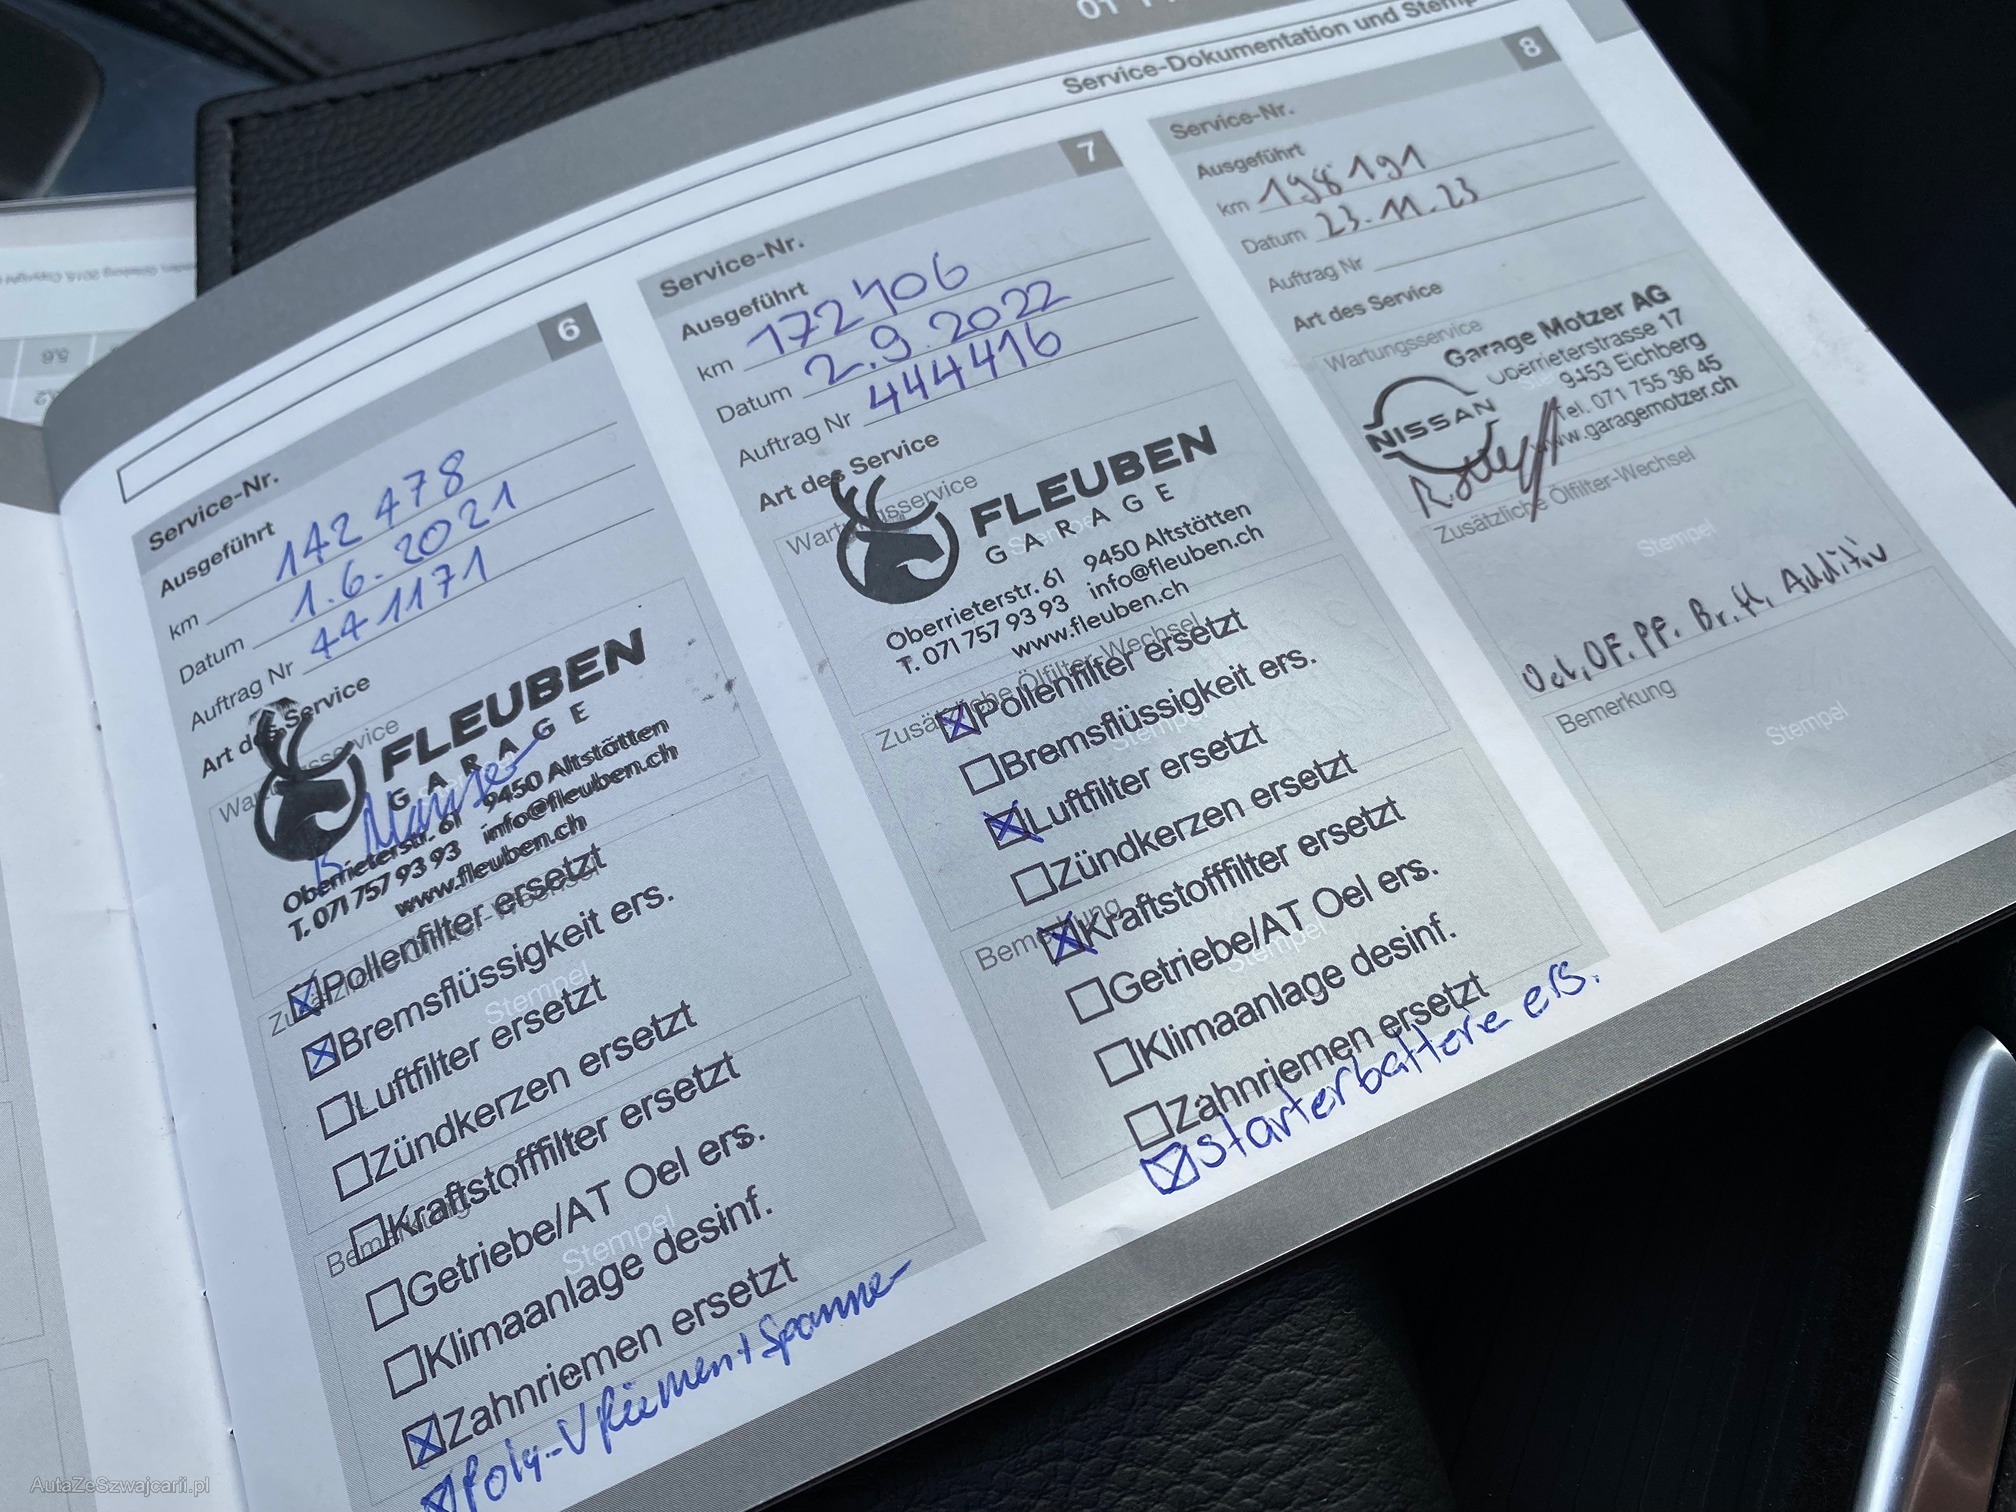 Service-Dokumentation und Stemp
Service-Nr. 6
Ausgeführt
km 142 478
Datum 1.6.2021
Auftrag Nr 441171
Art des Service
FLEUBEN
GARAGE
Oberrieterstr. 61 9450 Altstätten
T. 071 757 93 93 info@fleuben.ch
www.fleuben.ch
Pollenfilter ersetzt
Bremsflüssigkeit ers.
Stempel
Luftfilter ersetzt
Zündkerzen ersetzt
Kraftstofffilter ersetzt
Getriebe/AT Oel ers.
Stempel
Klimaanlage desinf.
Zahnriemen ersetzt
Poly-V Riemen + Spanner
Service-Nr. 7
Ausgeführt
km 172406
Datum 2.9.2022
Auftrag Nr 444416
Art des Service
Wartungsservice
FLEUBEN
GARAGE
Oberrieterstr. 61 9450 Altstätten
T. 071 757 93 93 info@fleuben.ch
www.fleuben.ch
Zusätzliche Ölfilter-Wechsel
Pollenfilter ersetzt
Bremsflüssigkeit ers.
Stempel
Luftfilter ersetzt
Zündkerzen ersetzt
Kraftstofffilter ersetzt
Bemerkung
Getriebe/AT Oel ers.
Stempel
Klimaanlage desinf.
Zahnriemen ersetzt
Starterbatterie ers.
Service-Nr. 8
Ausgeführt
km 198 191
Datum 23.11.23
Auftrag Nr
Art des Service
Wartungsservice
Garage Motzer AG
Oberrieterstrasse 17
9453 Eichberg
Tel. 071 755 36 45
www.garagemotzer.ch
NISSAN
Zusätzliche Ölfilter-Wechsel
Stempel
Oel, OF. PF. Br.fl. Additiv
Bemerkung
Stempel
AutaZeSzwajcarii.pl